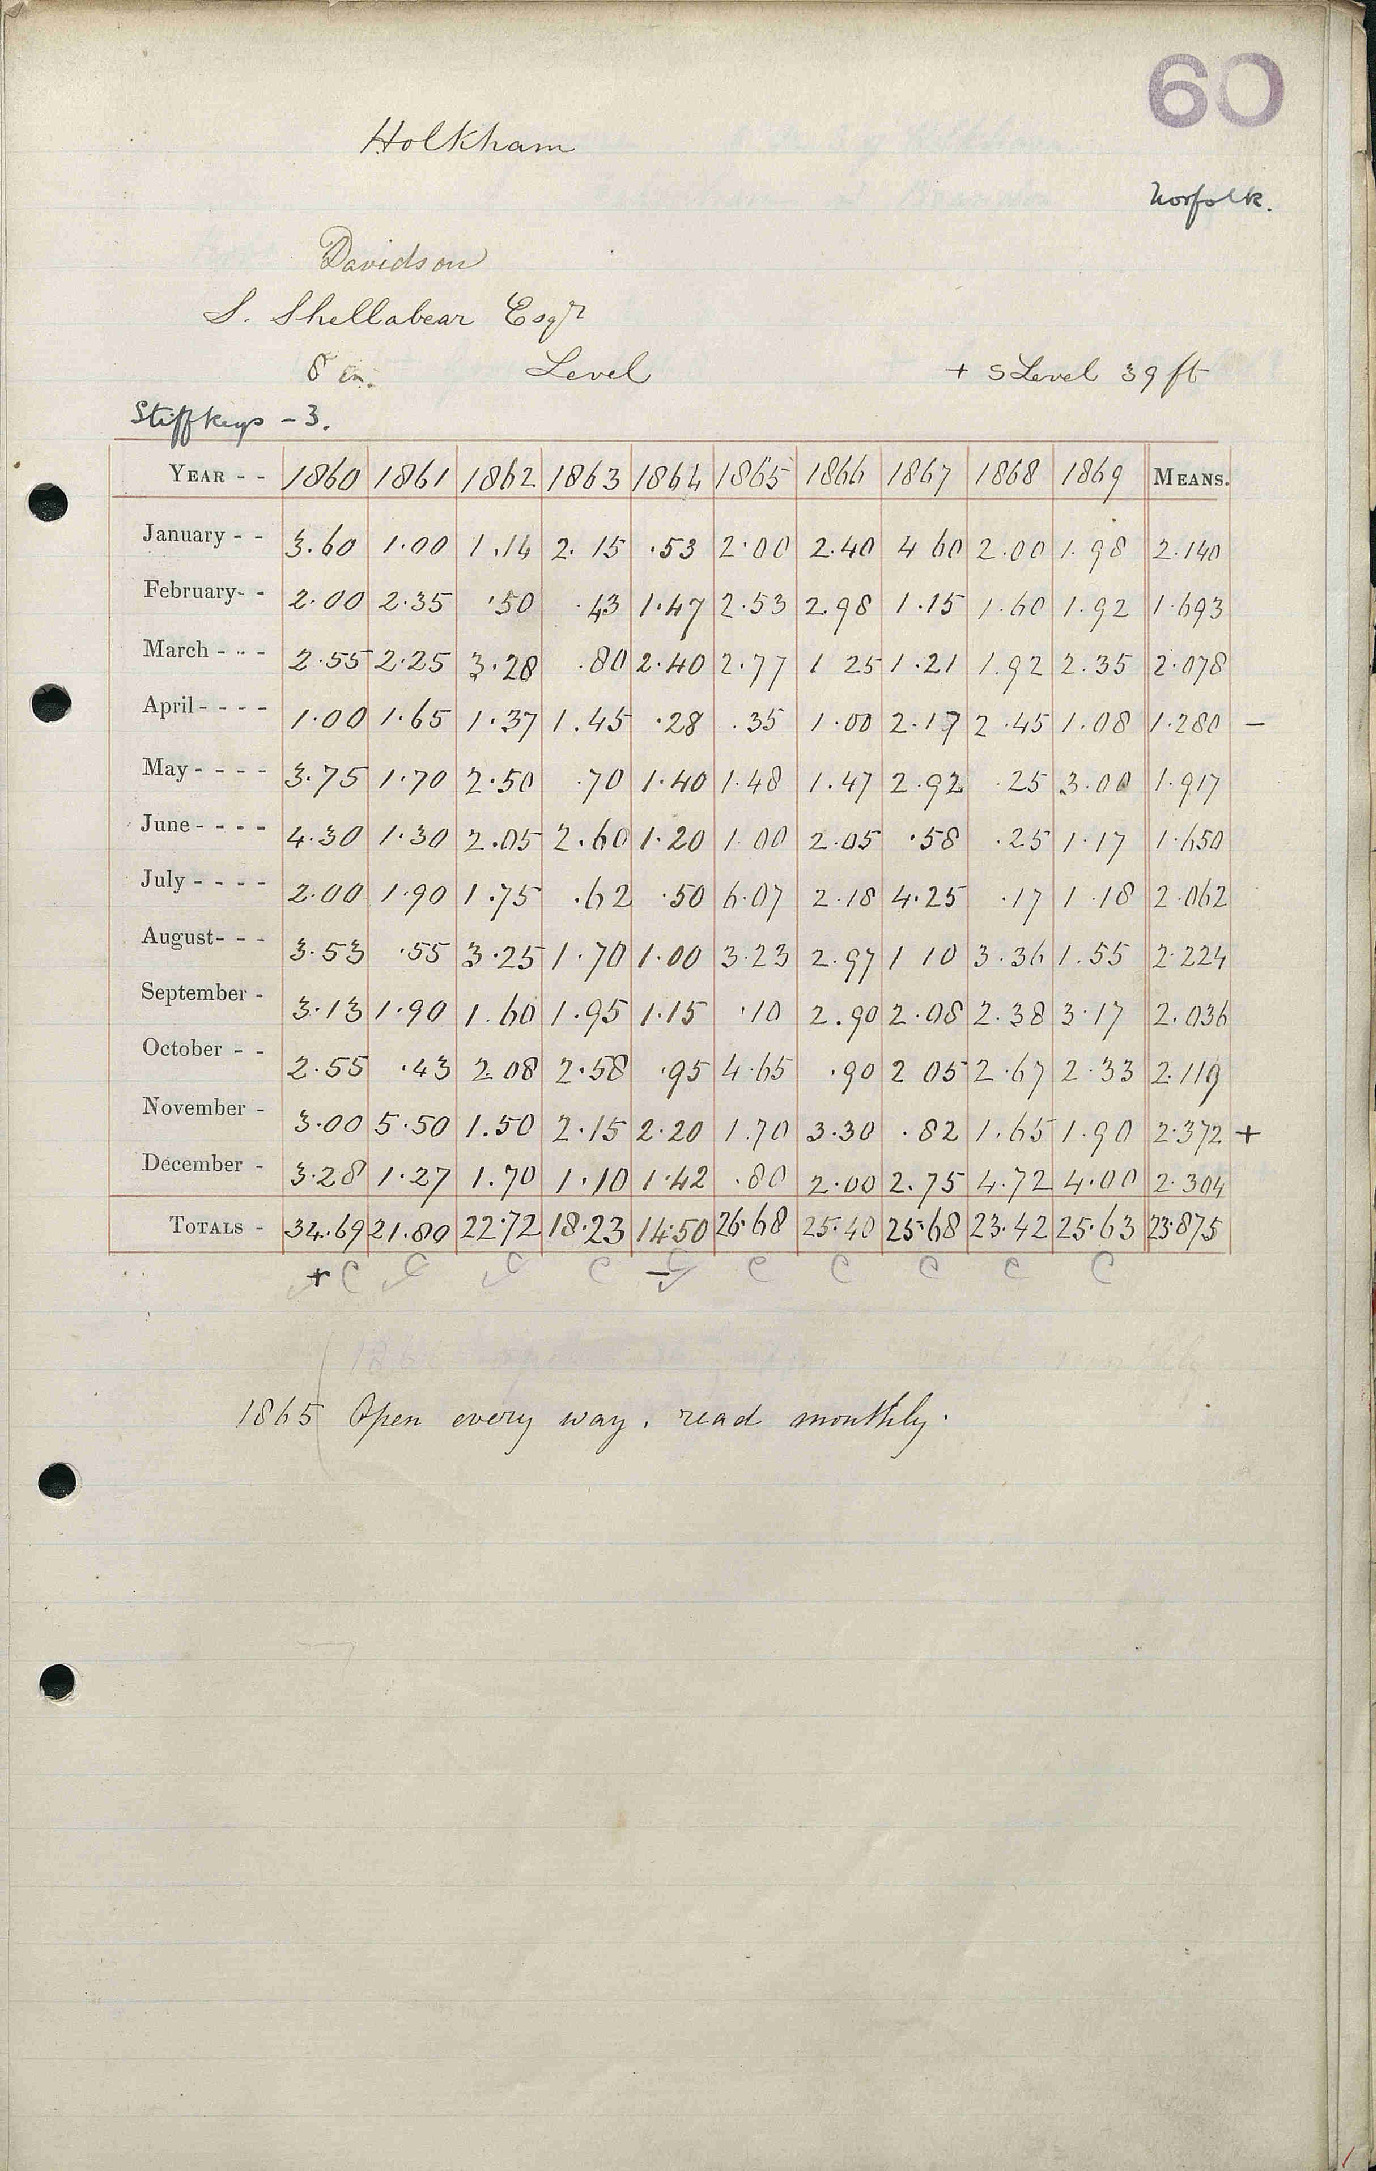 60
Holkham
Norfolk.
Davidson
S. Shellabear Esqr
8 in. Level + SLevel 39 ft
Stiffkeys - 3.
YEAR - - 1860 1861 1862 1863 1864 1865 1866 1867 1868 1869 MEANS.
January - - 3.60 1.00 1.14 2.15 .53 2.00 2.40 4 60 2.00 1.98 2.140
February- - 2.00 2.35 .50 .43 1.47 2.53 2.98 1.15 1.60 1.92 1.693
March - - - 2.55 2.25 3.28 .80 2.40 2.77 1 25 1.21 1.92 2.35 2.078
April - - - - 1.00 1.65 1.37 1.45 .28 .35 1.00 2.17 2.45 1.08 1.280 -
May - - - - 3.75 1.70 2.50 .70 1.40 1.48 1.47 2.92 .25 3.00 1.917
June - - - - 4.30 1.30 2.05 2.60 1.20 1.00 2.05 .58 .25 1.17 1.650
July - - - - 2.00 1.90 1.75 .62 .50 6.07 2.18 4.25 .17 1.18 2.062
August- - - 3.53 .55 3.25 1.70 1.00 3.23 2.97 1 10 3.36 1.55 2.224
September - 3.13 1.90 1.60 1.95 1.15 .10 2.90 2.08 2.38 3.17 2.036
October - - 2.55 .43 2.08 2.58 .95 4.65 .90 2 05 2.67 2.33 2.119
November - 3.00 5.50 1.50 2.15 2.20 1.70 3.30 .82 1.65 1.90 2.372 +
December - 3.28 1.27 1.70 1.10 1.42 .80 2.00 2.75 4.72 4.00 2.304
TOTALS - 34.69 21.80 22.72 18.23 14.50 26.68 25.40 25.68 23.42 25.63 23.875
+ C C C C - C C C C C C
1865 Open every way. read monthly.